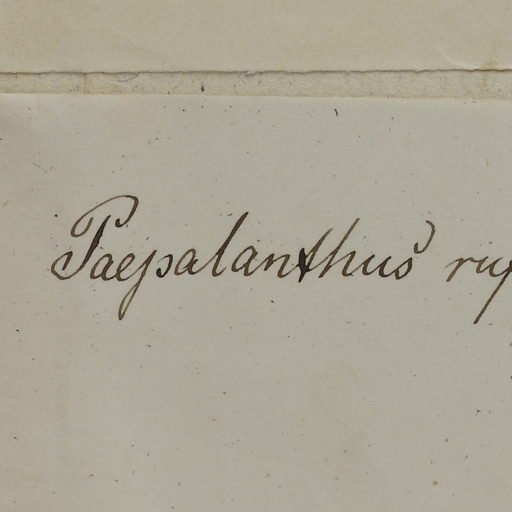 Paepalanthus ruf